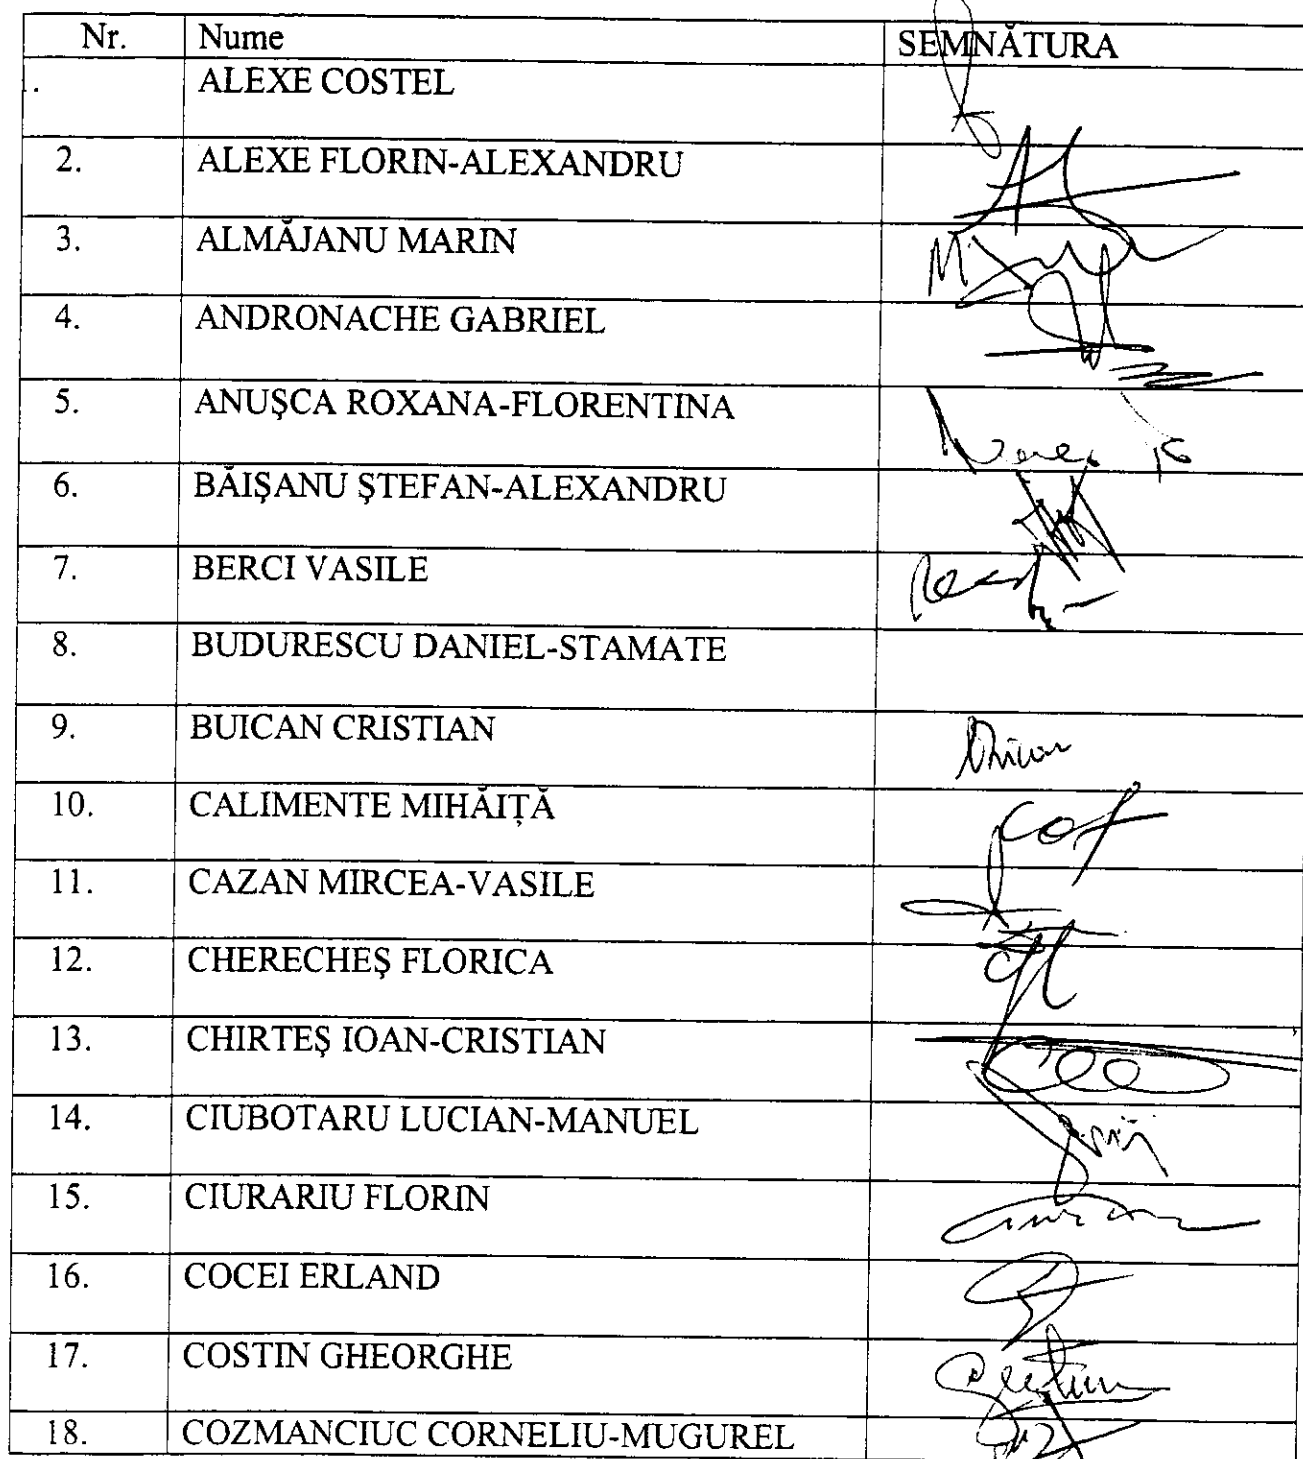 Nr. Nume SEMNĂTURA
. ALEXE COSTEL
2. ALEXE FLORIN-ALEXANDRU
3. ALMĂJANU MARIN
4. ANDRONACHE GABRIEL
5. ANUŞCA ROXANA-FLORENTINA
6. BĂIŞANU ŞTEFAN-ALEXANDRU
7. BERCI VASILE
8. BUDURESCU DANIEL-STAMATE
9. BUICAN CRISTIAN
10. CALIMENTE MIHĂIŢĂ
11. CAZAN MIRCEA-VASILE
12. CHERECHEŞ FLORICA
13. CHIRTEŞ IOAN-CRISTIAN
14. CIUBOTARU LUCIAN-MANUEL
15. CIURARIU FLORIN
16. COCEI ERLAND
17. COSTIN GHEORGHE
18. COZMANCIUC CORNELIU-MUGUREL